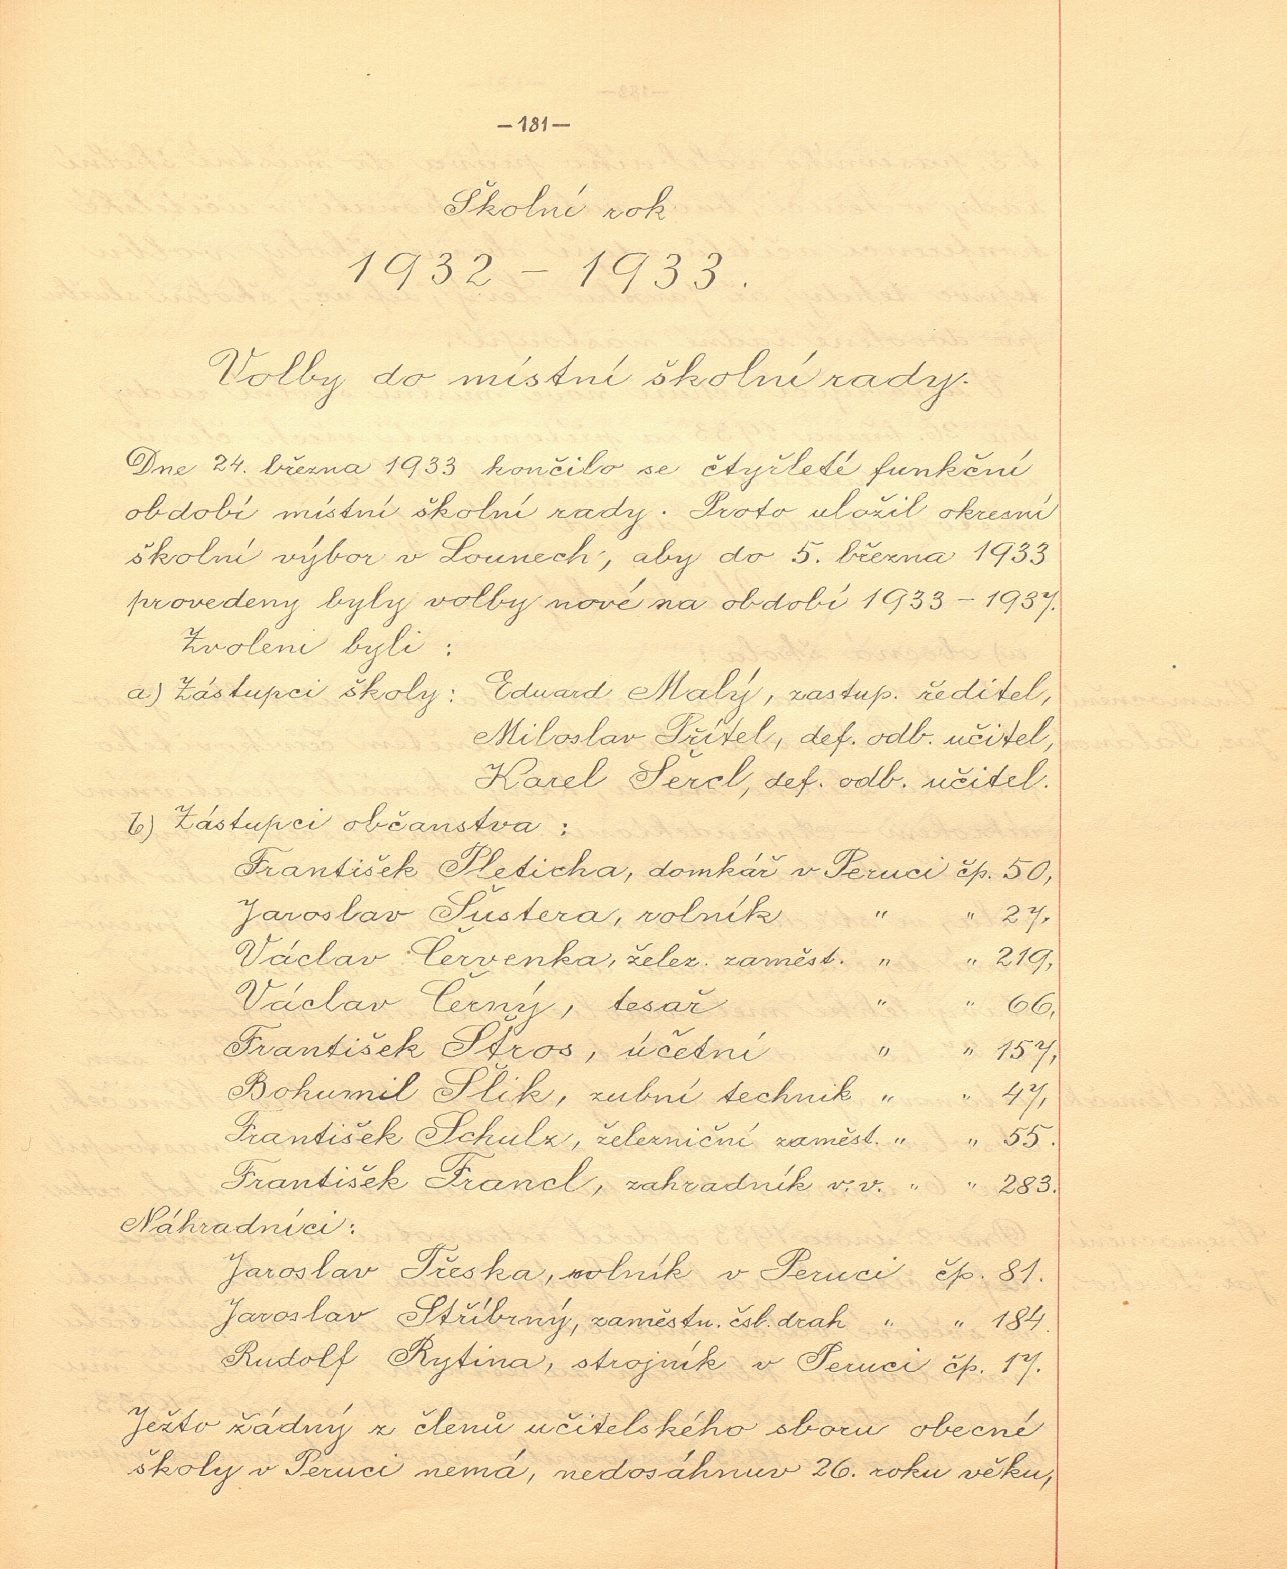 –181–
Školní rok
1932 – 1933.
Volby do místní školní rady.
Dne 24. března 1933 končilo se čtyřleté funkční
období místní školní rady. Proto uložil okresní
školní výbor v Lounech, aby do 5. března 1933
provedeny byly volby nové na období 1933 – 1937.
Zvoleni byli :
a) Zástupci školy: Eduard Malý, zastup. ředitel,
Miloslav Přítel, def. odb. učitel,
Karel Šercl, def. odb. učitel.
b) Zástupci občanstva :
František Pleticha, domkář v Peruci čp. 50,
Jaroslav Šustera, rolník " " 27,
Václav Červenka, želez. zaměst. " " 219,
Václav Černý, tesař " " 66,
František Štros, účetní " " 157,
Bohumil Šlik, zubní technik " " 47,
František Schulz, železniční zaměst. " " 55.
František Francl, zahradník v. v. " " 283.
Náhradníci :
Jaroslav Třeska, rolník v Peruci čp. 81.
Jaroslav Stříbrný, zaměstn. čsl. drah " " 184.
Rudolf Rytina, strojník v Peruci čp. 17.
Ježto žádný z členů učitelského sboru obecné
školy v Peruci nemá, nedosáhnuv 26. roku věku,